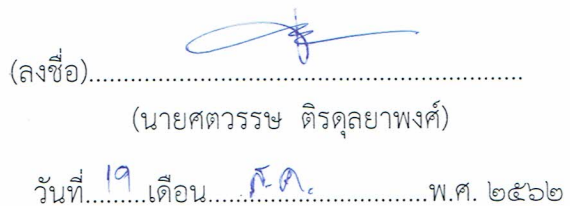 (ลงชื่อ)...............................................................
(นายศตวรรษ ติรดุลยาพงศ์)
วันที่....19....เดือน.....ส.ค.................พ.ศ. ๒๕๖๒